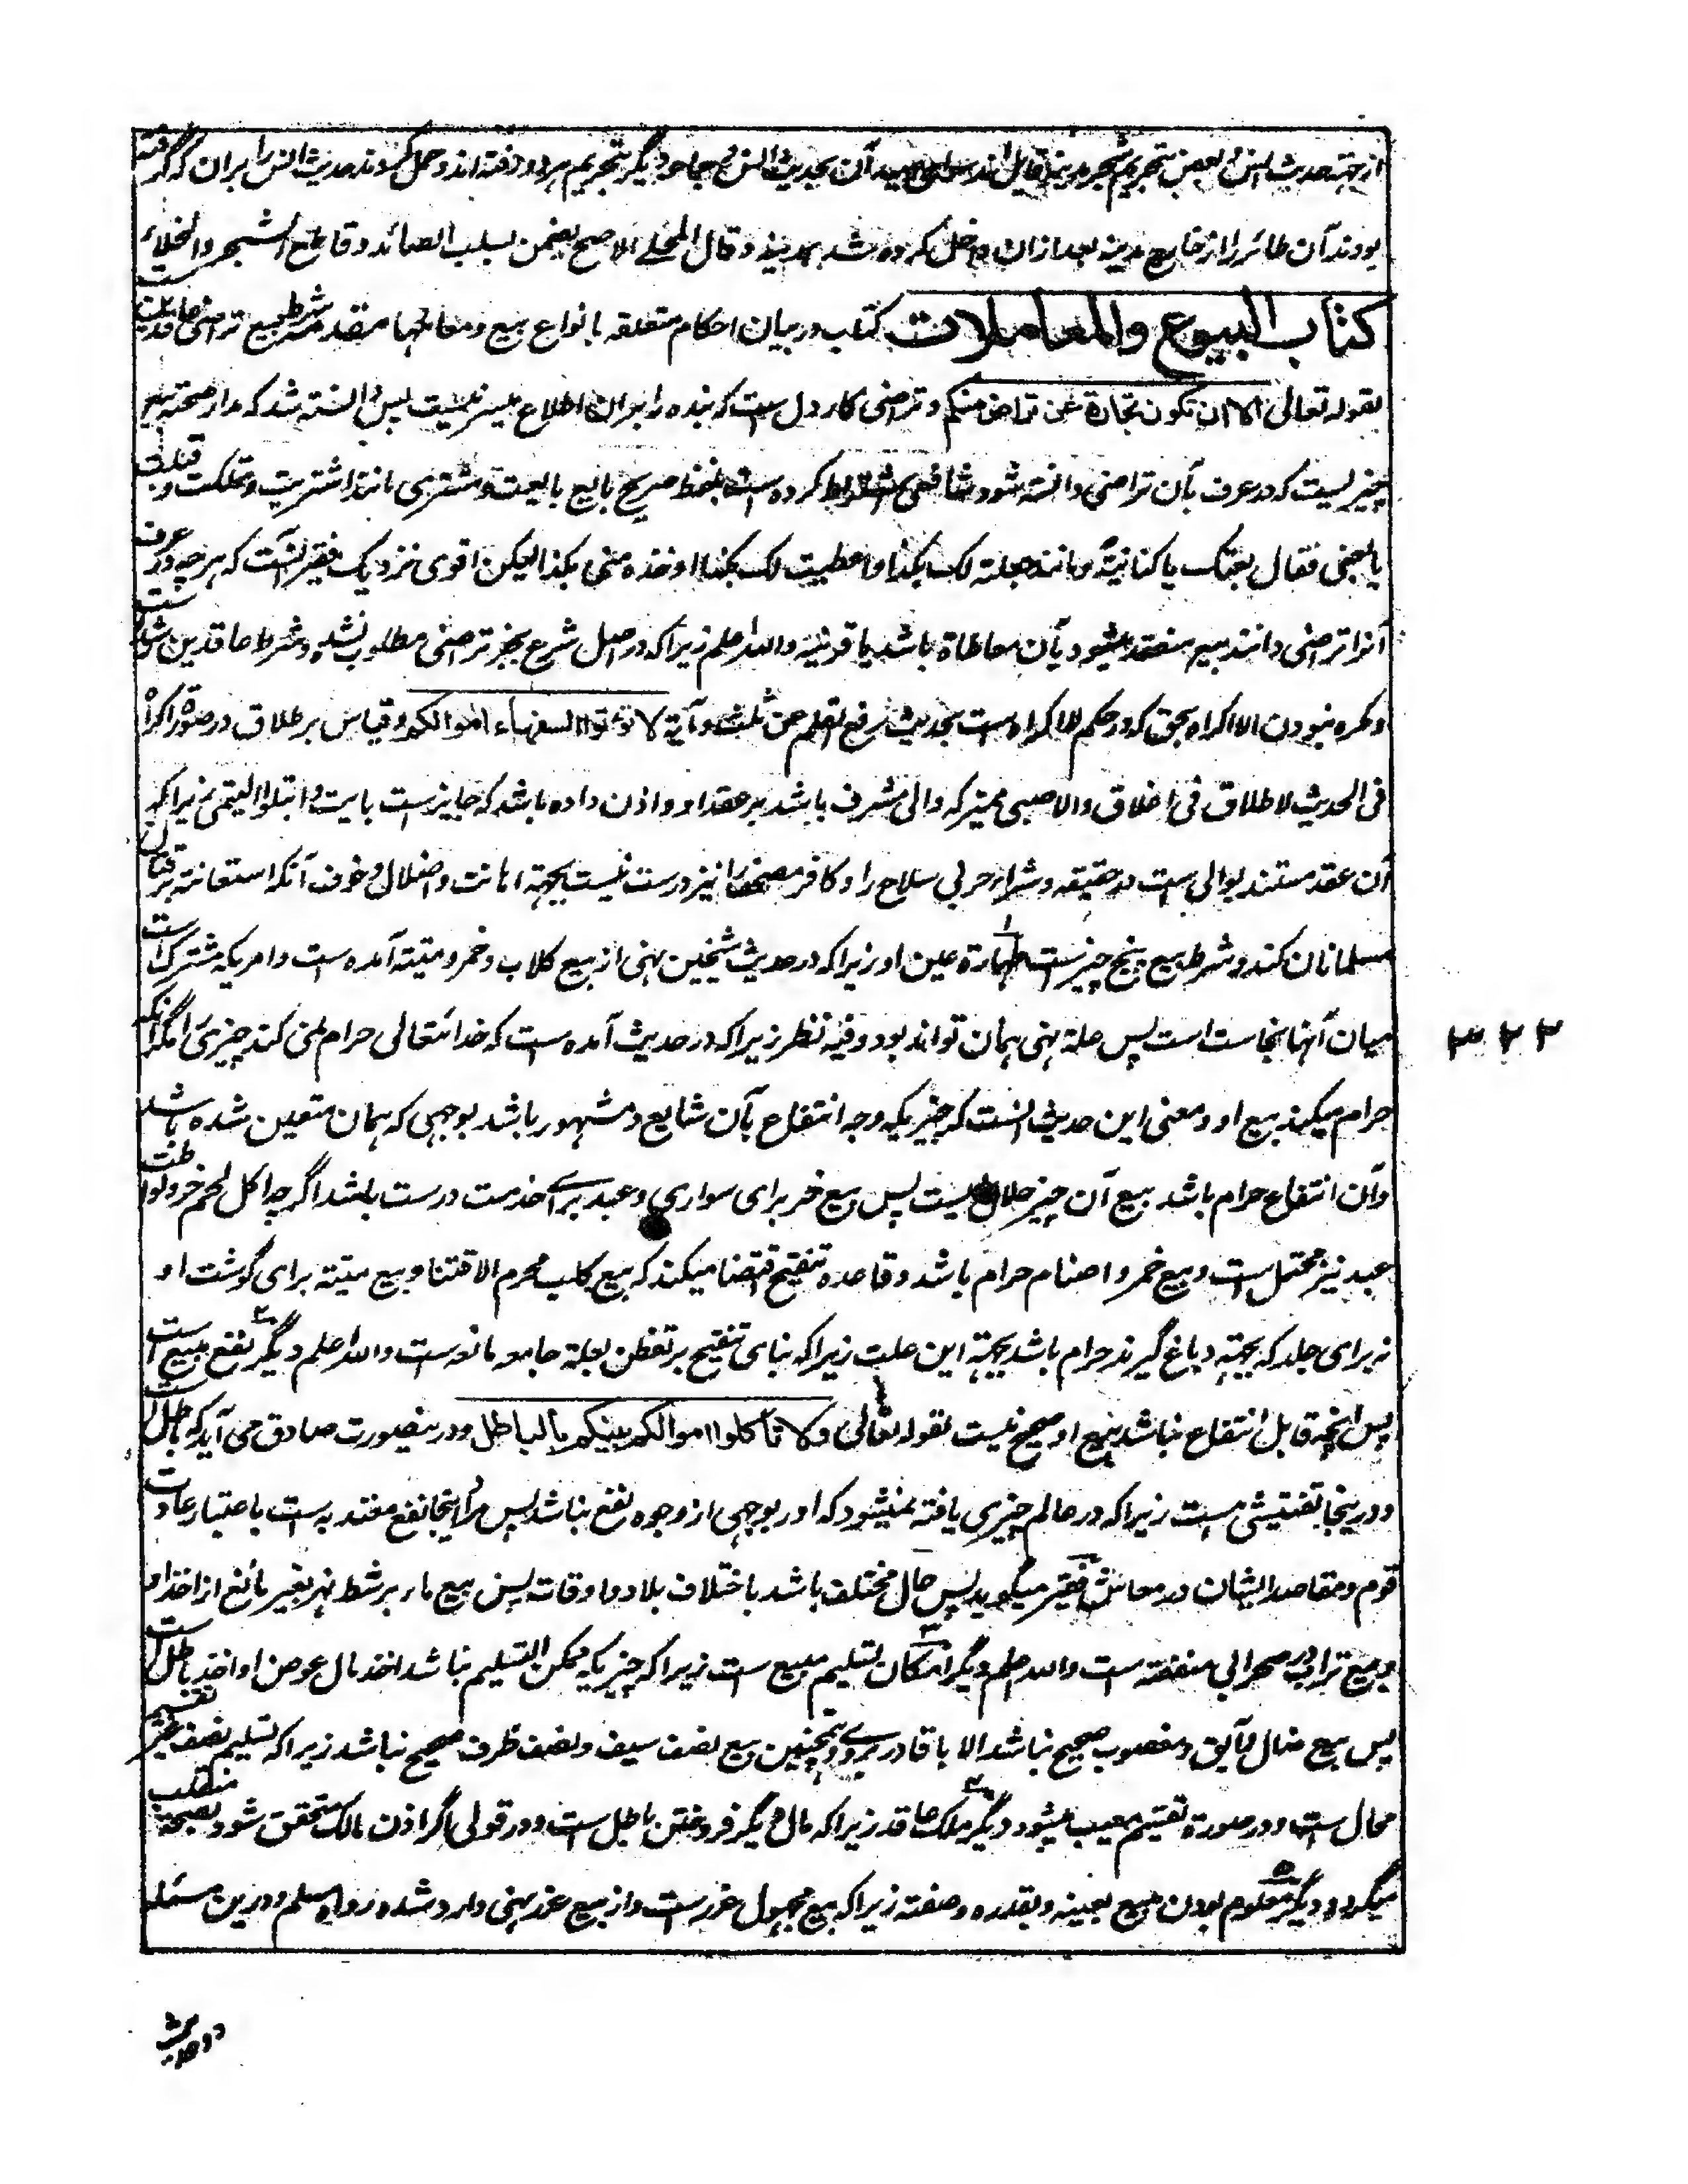 از جهته حدیث انس و بعض بتحریم شجر مدینه قایل اند صید آن بحدیث انس و جماعه دیگر بتحریم هر دو رفته اند و حمل کردند حدیث انس را بران که گرفته
بودند آن طائر را از خارج مدینه بعد ازان داخل کرده شد بمدینه و قال المحلے الاصح یضمن بسلب الصائد و قاطع الشجر والخلاء
کتاب البیوع والمعاملات کتاب در بیان احکام متعلقه بانواع بیع و معاملها مقدمه شرط بیع تراضی عاقدین ست
لقوله تعالی الا ان تکون تجارة عن تراض منکم و تراضی کار دل ست که بنده را بران اطلاع میسر نیست پس دانسته شد که مدار صحته بیع
چیزیست که در عرف بآن تراضی دانسته شود و شافعی اشتراط کرده است بلفظ صریح بایع بایعت و مشتری مانند اشتریت و تملکت و قبلت
یا بعنی فقال بعتک یا کنایته مانند جعلته لک بکذا و اعطیت لک بکذا او خذه منی بکذا لیکن اقوی نزدیک فقیر آنست که هر چه در عرف
آنرا تراضی دانند بیع منعقد میشود بآن معاطاة باشد یا قرینه والله اعلم زیرا که در اصل شرع بجز تراضی مطلوب نشده و شرط عاقدین ست
و مکره نبودن الا اکراه بحق که در حکم لا اکراه ست بحدیث رفع القلم عن ثلث و آیة لا تؤتوا السفهاء اموالکم و قیاس بر طلاق در صورة اکراه
فی الحدیث لا طلاق فی اغلاق والا صبی ممیز که والی مشرف باشد بر عقد او و اذن داده باشد که جایز ست بایت وابتلوا الیتمی زیرا که
آن عقد مستند بوالی ست در حقیقه و شراء حربی سلاح را و کافر مصحف را نیز درست نیست بجهته اهانت و اضلال و خوف آنکه استعانته بر قتال
مسلمانان کند و شرط بیع پنج چیز ست طهارة عین او زیرا که در حدیث شیخین نهی از بیع کلاب و خمر و میته آمده ست و امریکه مشترک ست
میان آنها نجاست است پس علة نهی همان تواند بود و فیه نظر زیرا که در حدیث آمده ست که خدا تعالی حرام نمی کند چیزی را مگر آنکه
حرام میکند بیع او و معنی این حدیث آنست که چیزیکه وجه انتفاع بآن شایع و مشهور باشد بوجهی که همان متعین شده باشد
و آن انتفاع حرام باشد بیع آن چیز حلال نیست پس بیع خر برای سواری و عبد برای خدمت درست باشد اگر چه اکل لحم خر و لواطت
عبد نیز محتمل ست و بیع خمر و اصنام حرام باشد و قاعده تنقیح اقتضا میکند که بیع کلب محرم الاقتنا و بیع میته برای گوشت او
نه برای جلد که بجهته دباغ گیرند حرام باشد بجهته این علت زیرا که بنای تنقیح بر تفطن بعلة جامعه مانعه ست والله اعلم دیگر ۲ نفع مبیع ست
پس آنچه قابل انتفاع نباشد بیع او صحیح نیست لقوله تعالی ولا تأکلوا اموالکم بینکم بالباطل و درینصورت صادق می آید که باطل ست
و درینجا تفتیشی هست زیرا که در عالم چیزی یافته نمیشود که او را بوجهی از وجوه نفع نباشد پس مراد اینجا نفع معتد به ست باعتبار عادت
قوم و مقاصد ایشان در معاش فقیر میگوید پس حال مختلف باشد باختلاف بلاد و اوقات پس بیع ماء بر شط نهر بغیر مانع از اخذ او
و بیع تراب در صحرا بی منفعة ست والله اعلم دیگر ۳ امکان تسلیم مبیع ست زیرا که چیزیکه ممکن التسلیم نباشد اخذ مال عوض او اخذ باطل ست
پس بیع ضال و آبق و مغصوب صحیح نباشد الا با قادر بروے و همچنین بیع نصف سیف و نصف ظرف صحیح نباشد زیرا که تسلیم نصف بغیر تقسیم
محال ست و در صورة تقسیم معیب میشود دیگر ۴ ملک عاقد زیرا که مال دیگر فروختن باطل ست و در قولی اگر اذن مالک متحقق شود بصحة منقلب
میگردد و دیگر ۵ معلوم بودن مبیع بعینه و بقدره و صفته زیرا که بیع مجهول غرر ست و از بیع غرر نهی وارد شده رواه مسلم و درین مسئله
۳۲۲
دو حدیث